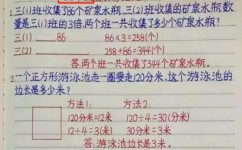 1.三(1)班收集了86个矿泉水瓶,三(2)班收集的矿泉水瓶数
量是三(1)班的3倍.两个班一共收集了多少个矿泉水瓶?
三(1) 86 86×3=258(个)
三(2) 258+86=344(个)
答:两个班一共收集了344个矿泉水瓶.
2.一个正方形游泳池走一圈要走120分米,这个游泳池的
边长是多少米?
方法1: 方法2:
120分米=12米 120÷4=30(分米)
12÷4=3(米) 30分米=3米
答:游泳池的边长是3米.